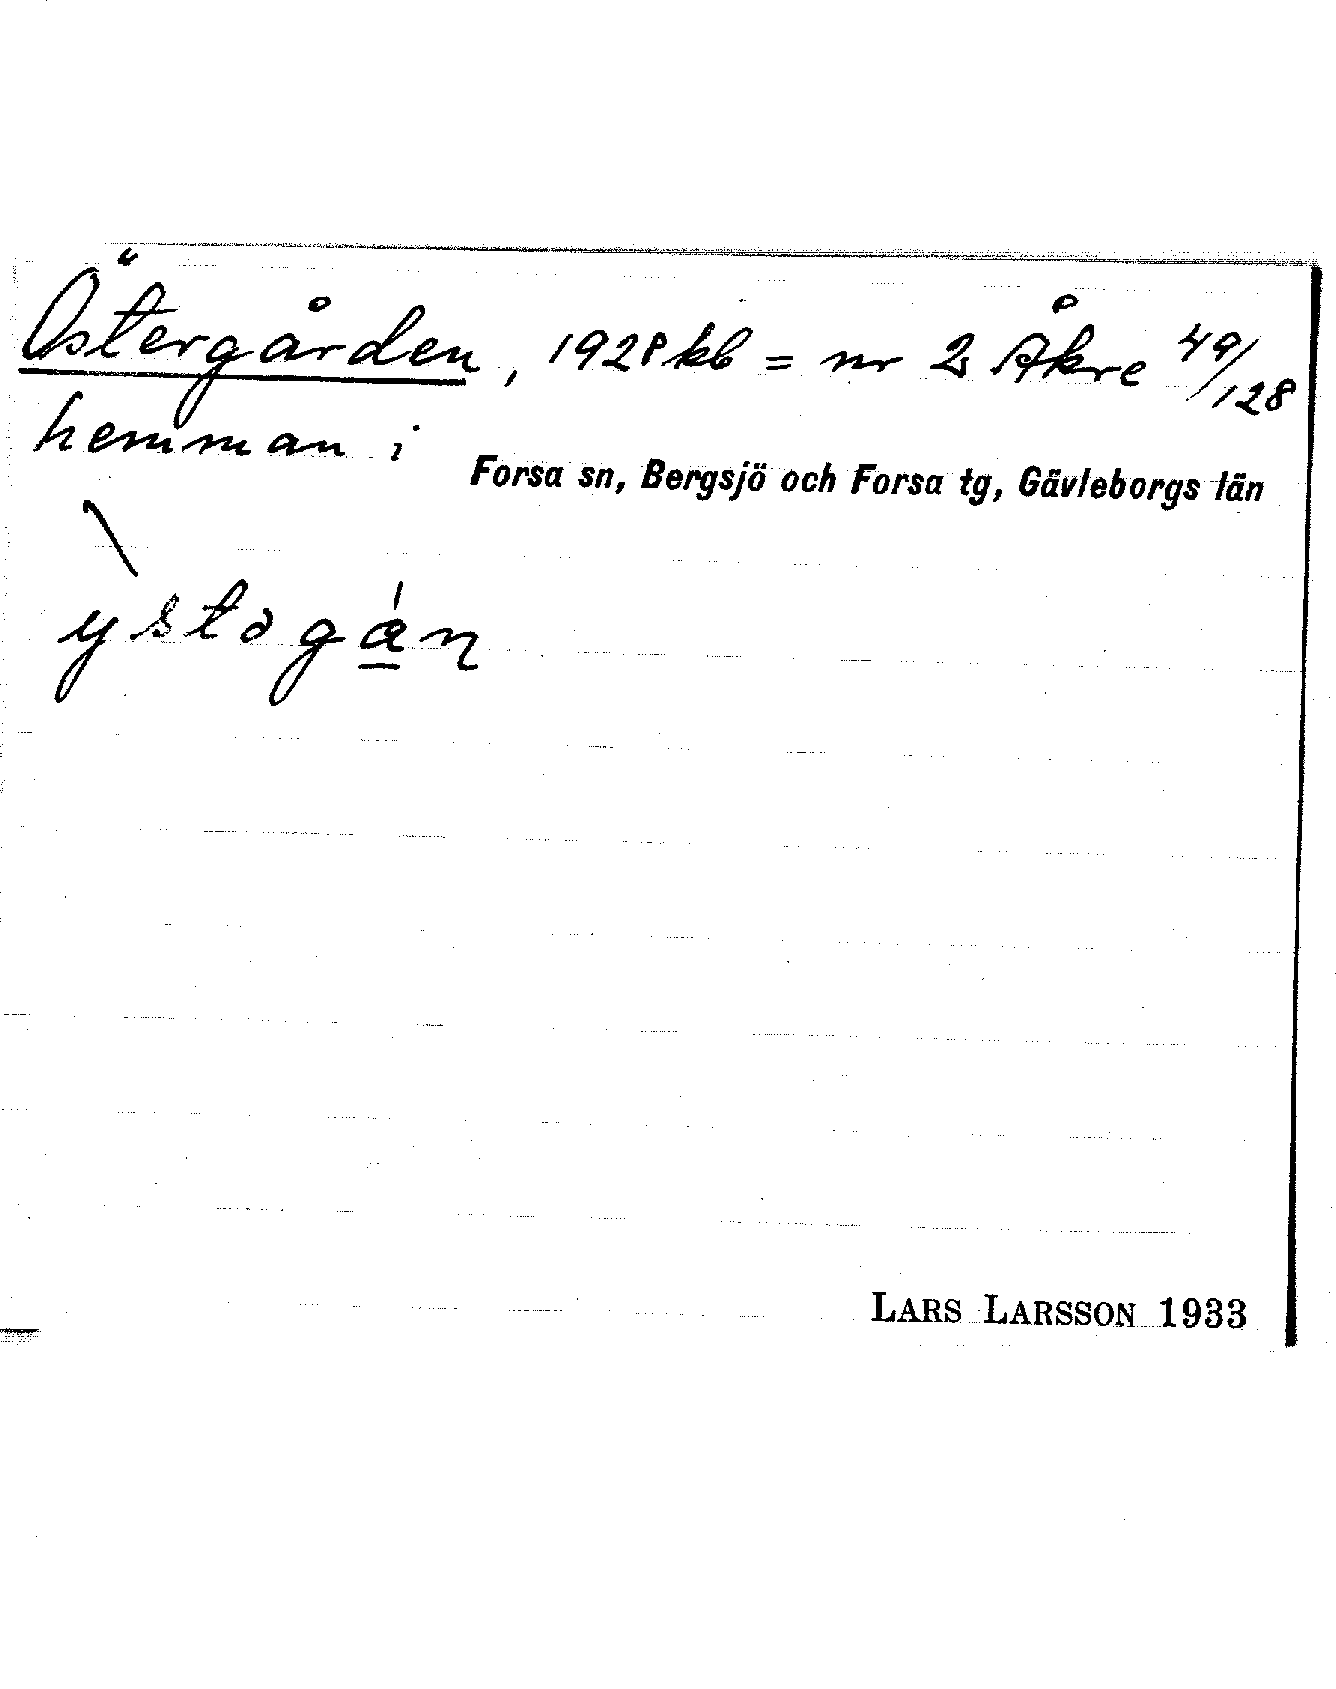 Östergården, 1928 kb = nr 2 Åkre 49/128
hemman i
Forsa sn, Bergsjö och Forsa tg, Gävleborgs län
ỳstəgá̲n
LARS LARSSON 1933